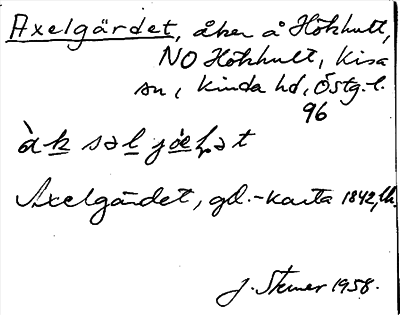 Axelgärdet, åker å Hökhult,
NO Hökhult, Kisa
sn, Kinda hd, Östg. l.
96
Axelgärdet, gd.-karta 1842, lk.
J. Stener 1958.